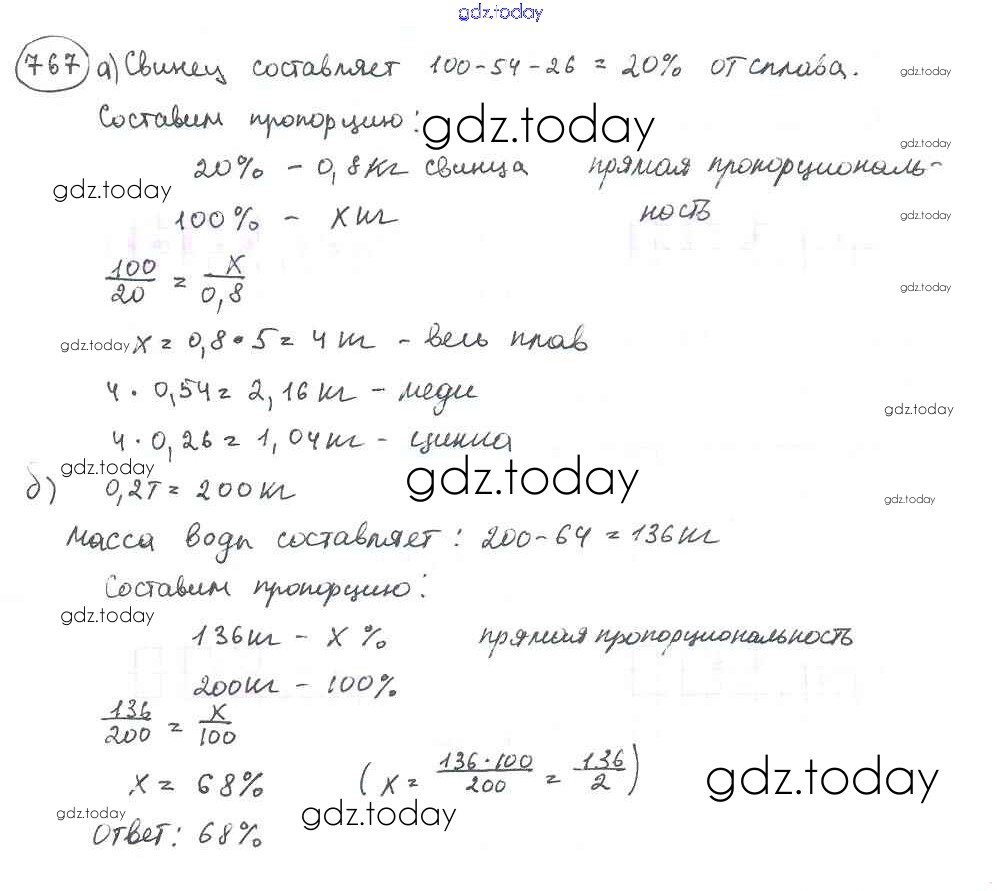 gdz.today
767 а) Свинец составляет 100-54-26 = 20% от сплава.
gdz.today
Составим пропорцию:
gdz.today
gdz.today
20% - 0,8кг свинца прямая пропорциональ-
gdz.today
100% - х кг ность
gdz.today
100/20 = х/0,8
gdz.today
gdz.today х = 0,8 • 5 = 4 кг - весь плав
4 • 0,54 = 2,16 кг - меди
gdz.today
4 • 0,26 = 1,04кг - цинка
gdz.today
gdz.today
б) 0,2т = 200 кг
gdz.today
Масса воды составляет: 200-64 = 136 кг
Составим пропорцию:
gdz.today
136кг - х % прямая пропорциональность
200кг - 100%
136/200 = х/100
х = 68% (х = 136•100/200 = 136/2)
gdz.today
gdz.today
gdz.today
Ответ: 68%